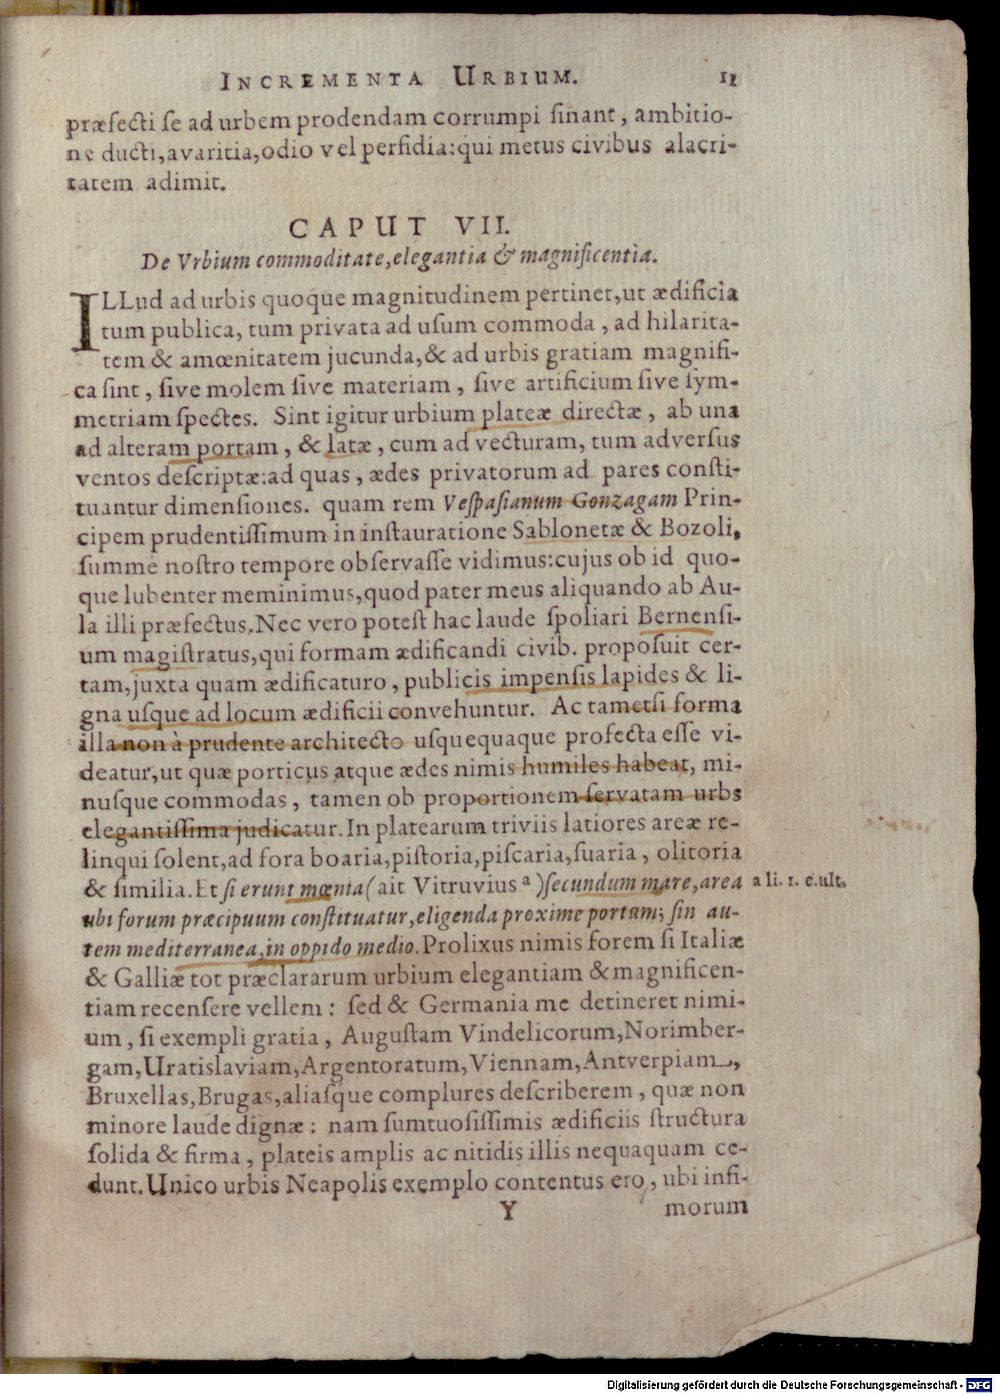 INCREMENTA URBIUM. 11
præfecti ſe ad urbem prodendam corrumpi ſinant, ambitio-
ne ducti, avaritia, odio vel perfidia: qui metus civibus alacri-
tatem adimit.
CAPUT VII.
De Vrbium commoditate, elegantia & magnificentia.
ILLud ad urbis quoque magnitudinem pertinet, ut ædificia
tum publica, tum privata ad uſum commoda, ad hilarita-
tem & amœnitatem jucunda, & ad urbis gratiam magnifi-
ca ſint, ſive molem ſive materiam, ſive artificium ſive ſym-
metriam ſpectes. Sint igitur urbium plateæ directæ, ab una
ad alteram portam, & latæ, cum ad vecturam, tum adverſus
ventos deſcriptæ: ad quas, ædes privatorum ad pares conſti-
tuantur dimenſiones. quam rem Veſpaſianum Gonzagam Prin-
cipem prudentiſſimum in inſtauratione Sablonetæ & Bozoli,
ſummè noſtro tempore obſervaſſe vidimus: cujus ob id quo-
que lubenter meminimus, quod pater meus aliquando ab Au-
la illi præfectus. Nec vero poteſt hac laude ſpoliari Bernenſi-
um magiſtratus, qui formam ædificandi civib. propoſuit cer-
tam, juxta quam ædificaturo, publicis impenſis lapides & li-
gna uſque ad locum ædificii convehuntur. Ac tametſi forma
illa non à prudente architecto uſquequaque profecta eſſe vi-
deatur, ut quæ porticus atque ædes nimis humiles habeat, mi-
nuſque commodas, tamen ob proportionem ſervatam urbs
elegantiſſima judicatur. In platearum triviis latiores areæ re-
linqui ſolent, ad fora boaria, piſtoria, piſcaria, ſuaria, olitoria
& ſimilia. Et ſi erunt mœnia (ait Vitruvius a) ſecundum mare, area a li. 1. c. ult.
ubi forum præcipuum conſtituatur, eligenda proxime portum; ſin au-
tem mediterranea, in oppido medio. Prolixus nimis forem ſi Italiæ
& Galliæ tot præclararum urbium elegantiam & magnificen-
tiam recenſere vellem: ſed & Germania me detineret nimi-
um, ſi exempli gratia, Auguſtam Vindelicorum, Norimber-
gam, Uratislaviam, Argentoratum, Viennam, Antverpiam,
Bruxellas, Brugas, aliaſque complures deſcriberem, quæ non
minore laude dignæ: nam ſumtuoſiſſimis ædificiis ſtructura
ſolida & firma, plateis amplis ac nitidis illis nequaquam ce-
dunt. Unico urbis Neapolis exemplo contentus ero, ubi infi-
Y morum
Digitalisierung gefördert durch die Deutsche Forschungsgemeinschaft - DFG